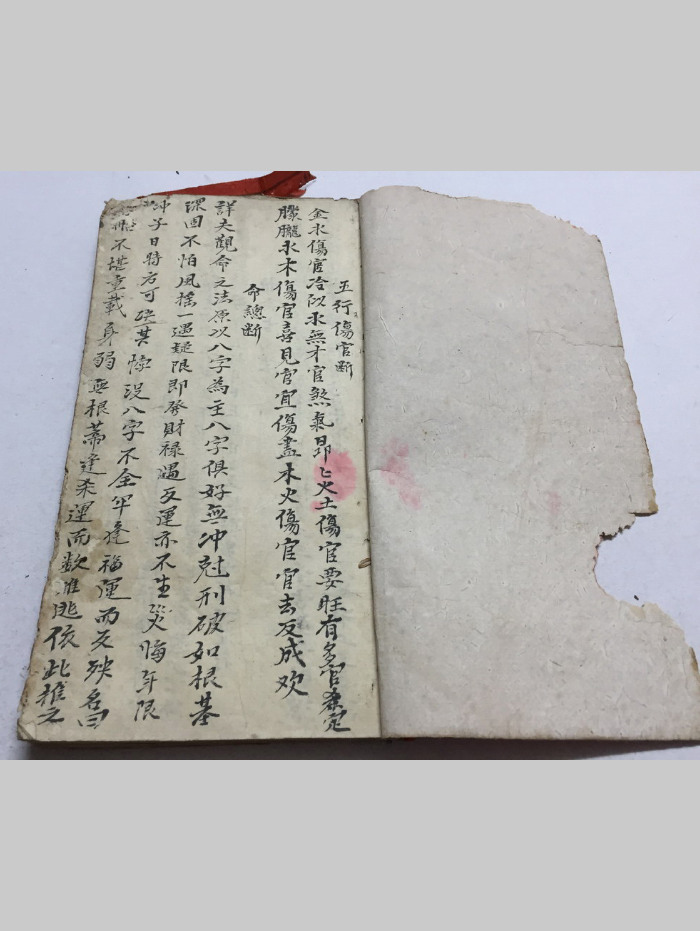 五行傷官斷
金水傷官冷似氷無才官煞氣昻匕火土傷官要旺有多官煞定
朦朧水木傷官喜見官宜傷盡木火傷官官去反成欢
命總断
詳夫觀命之法原以八字為主八字俱好無冲尅刑破如根基
深固不怕風搖一遇疑限即發財禄遇反運亦不生災晦年限
冲子日時方可其惊没八字不全罕逢福運而反殃名曰
不堪重載身弱無根蒂逢杀運而数难逃依此推之